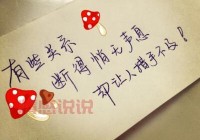 有些关系
断得悄无声息
却让人措手不及！